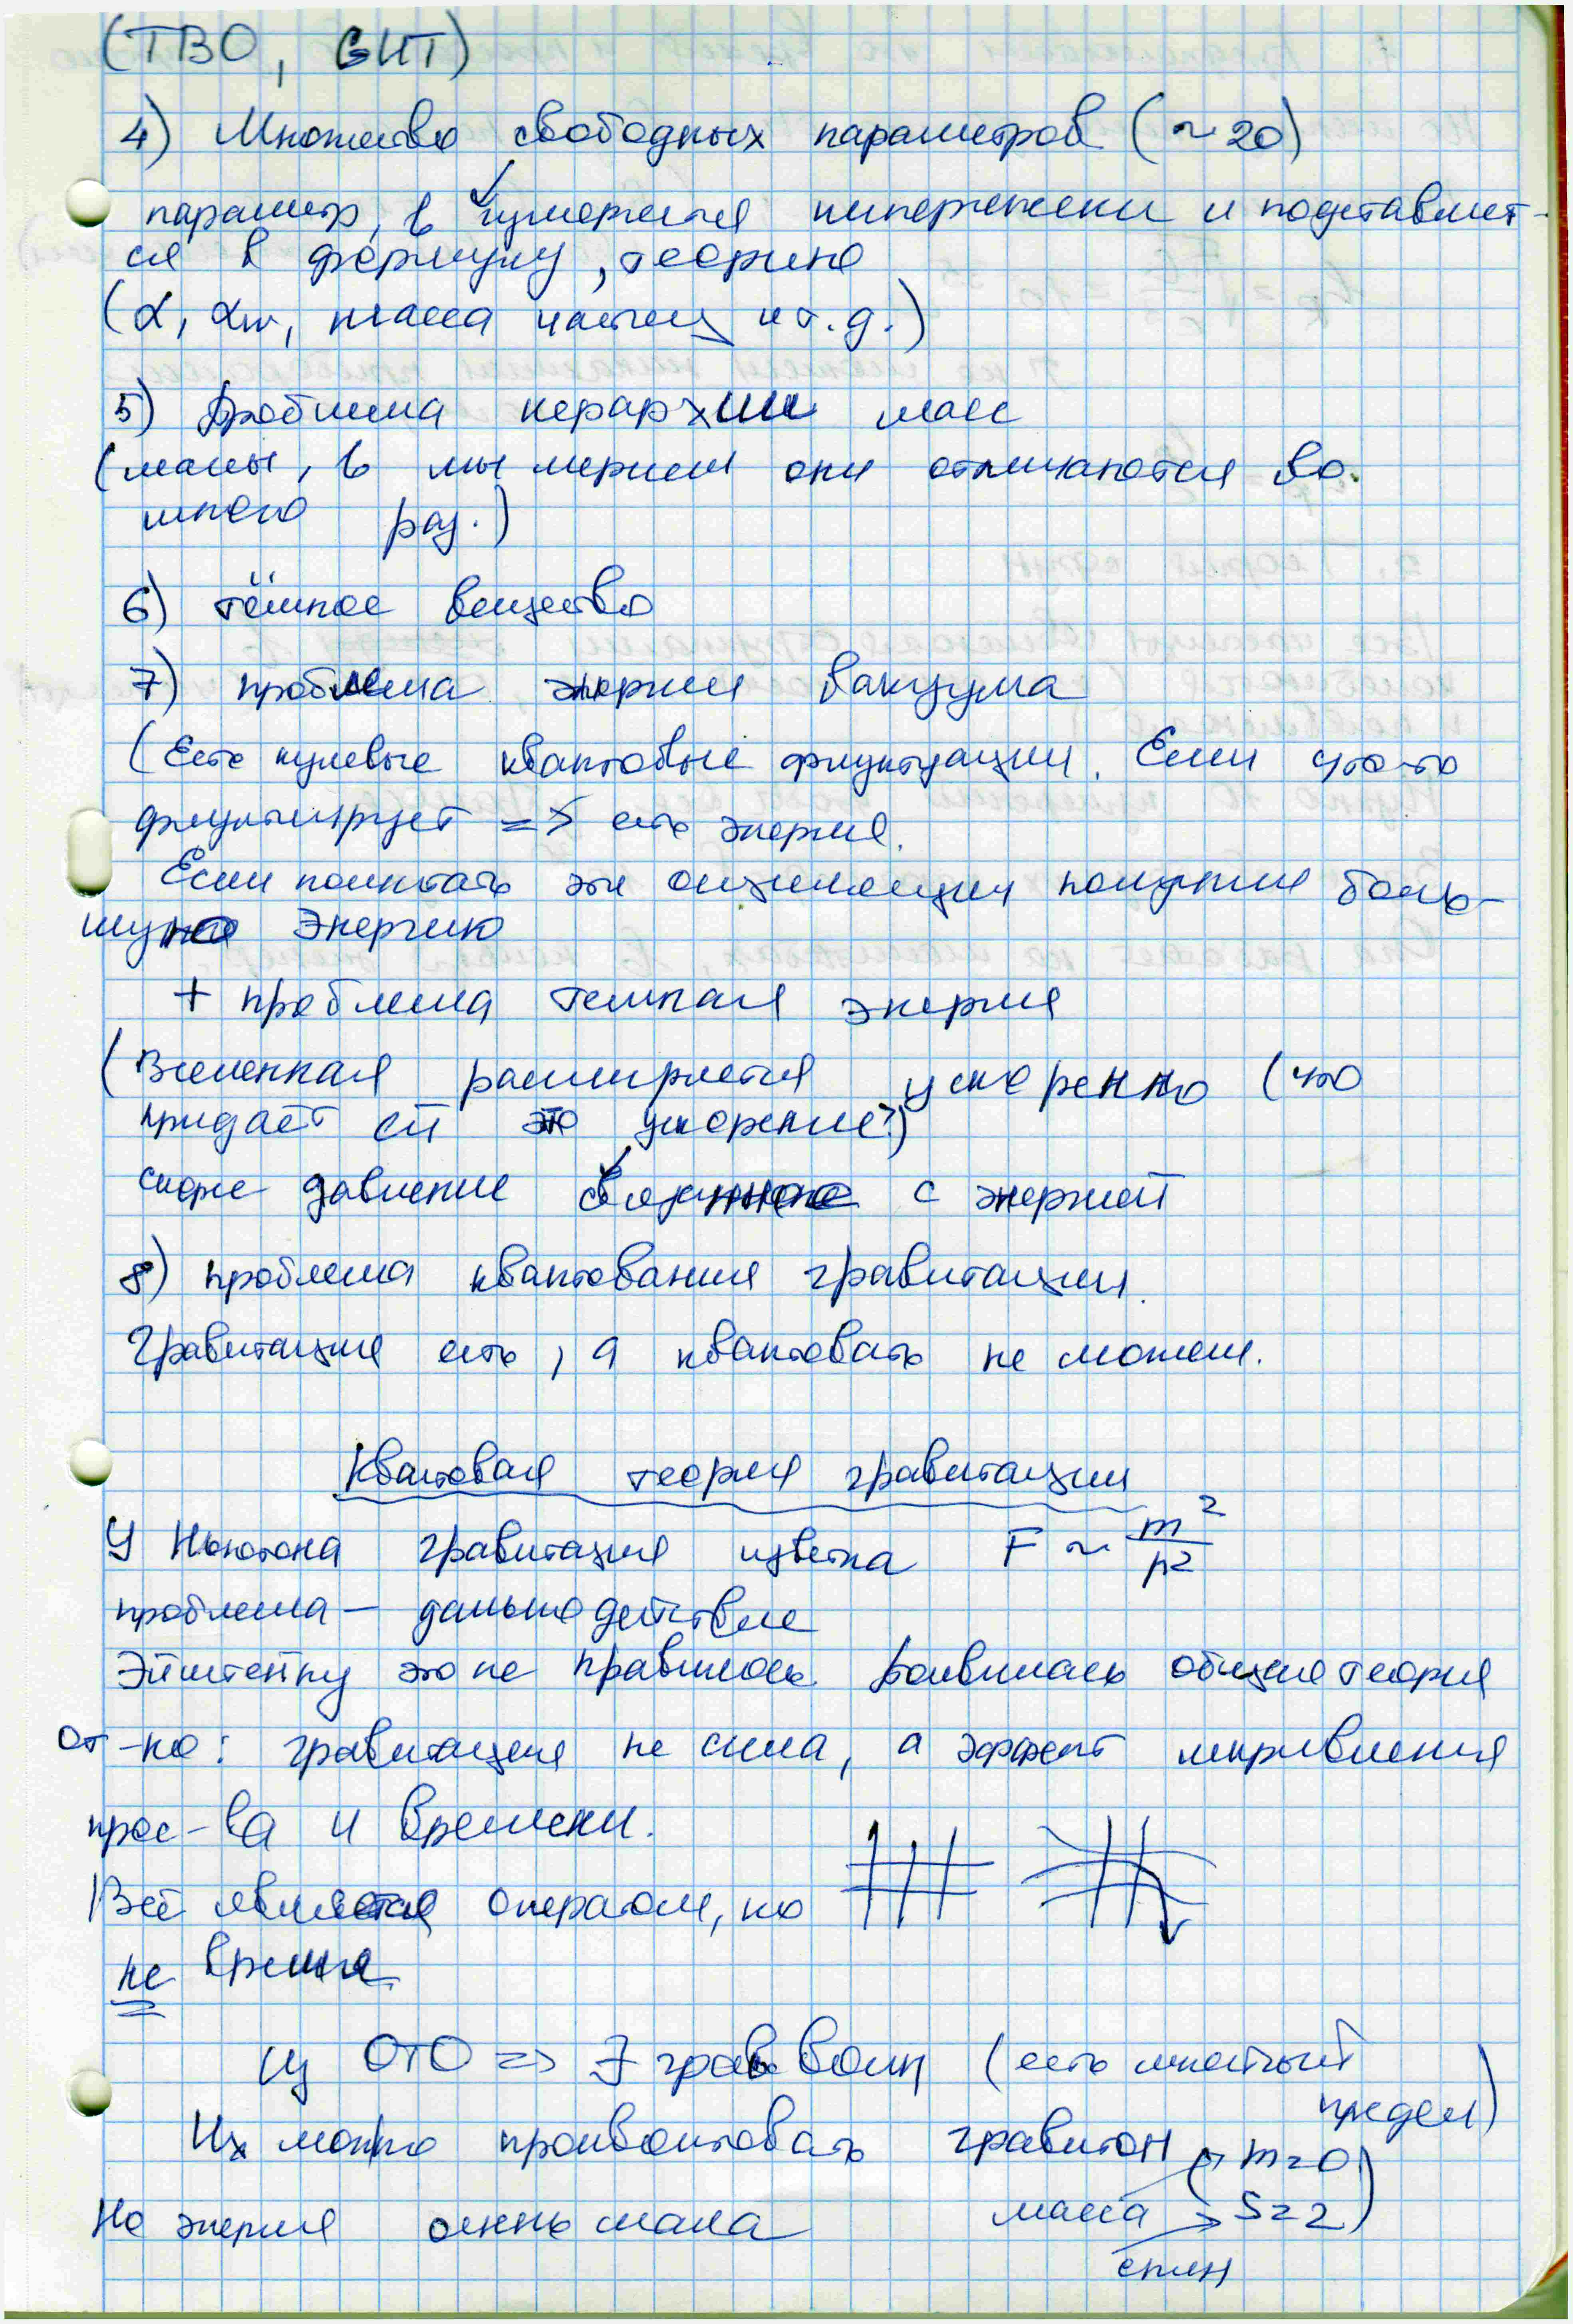 (ТВО, GUT)
4) Множество свободных параметров (~ 20)
параметр, в измеряется и подставляет-
ся в формулу, теорию
(α, αw, масса частиц и т. д.)
5) Проблема иерархии масс
(массы, в мы мерием они отличаются во
много раз.)
6) тёмное вещество
7) проблема энергии вакуума
(Есть нулевые квантовые флуктуации. Если что-то
флуктуирует => есть энергия.
Если посчитать эти осцилляции получим боль-
шую энергию
+ проблема темная энергия
(Вселенная расширяется ускоренно (что
придаёт ей это ускорение?)
скорее давление связанное с энергией
8) проблема квантования гравитации.
Гравитация есть, а квантовать не можем.
Квантовая теория гравитации
У Ньютона гравитация F ~ m²/r²
проблема - дальнодействие
Эйнштейну это не нравилось. Появилась общая теория
от-но: гравитация не сила, а эффект искривления
прос-ва и времени.
Всё является оператом, но
не время.
из ОТО => ∃ грав волн (есть
предел)
Их можно проквантовать гравитон (→ m=0
масса → S=2)
Но энергия очень мала
спин